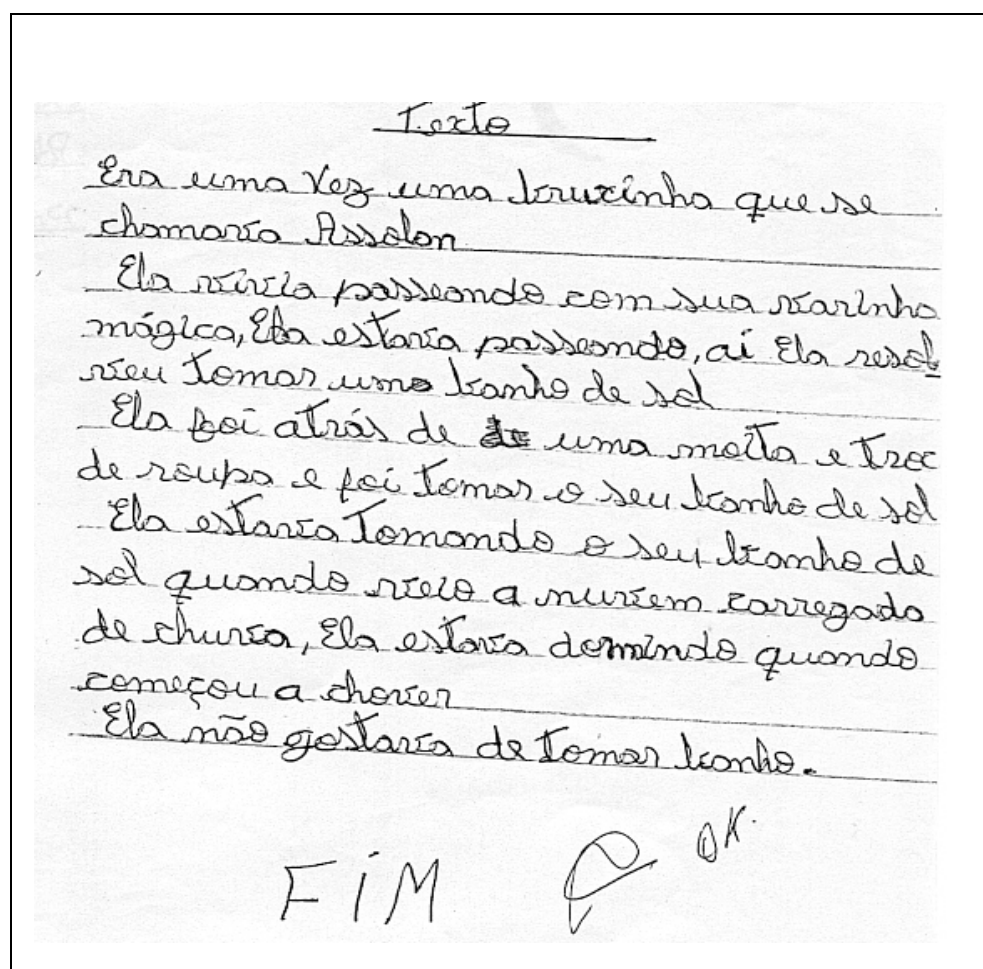 Texto
Era uma Vez uma bruxinha que se
chamava Assolon
Ela vivia passeando com sua varinha
mágica, Ela estava passeando, aí Ela resol
veu tomar uma banho de sol
Ela foi atrás de de uma moita e troc
de roupa e foi tomar o seu banho de sol
Ela estava Tomando o seu banho de
sol quando veio a nuvem carregado
de chuva, Ela estava dormindo quando
começou a chover
Ela não gostava de tomar banho.
FiM
OK.